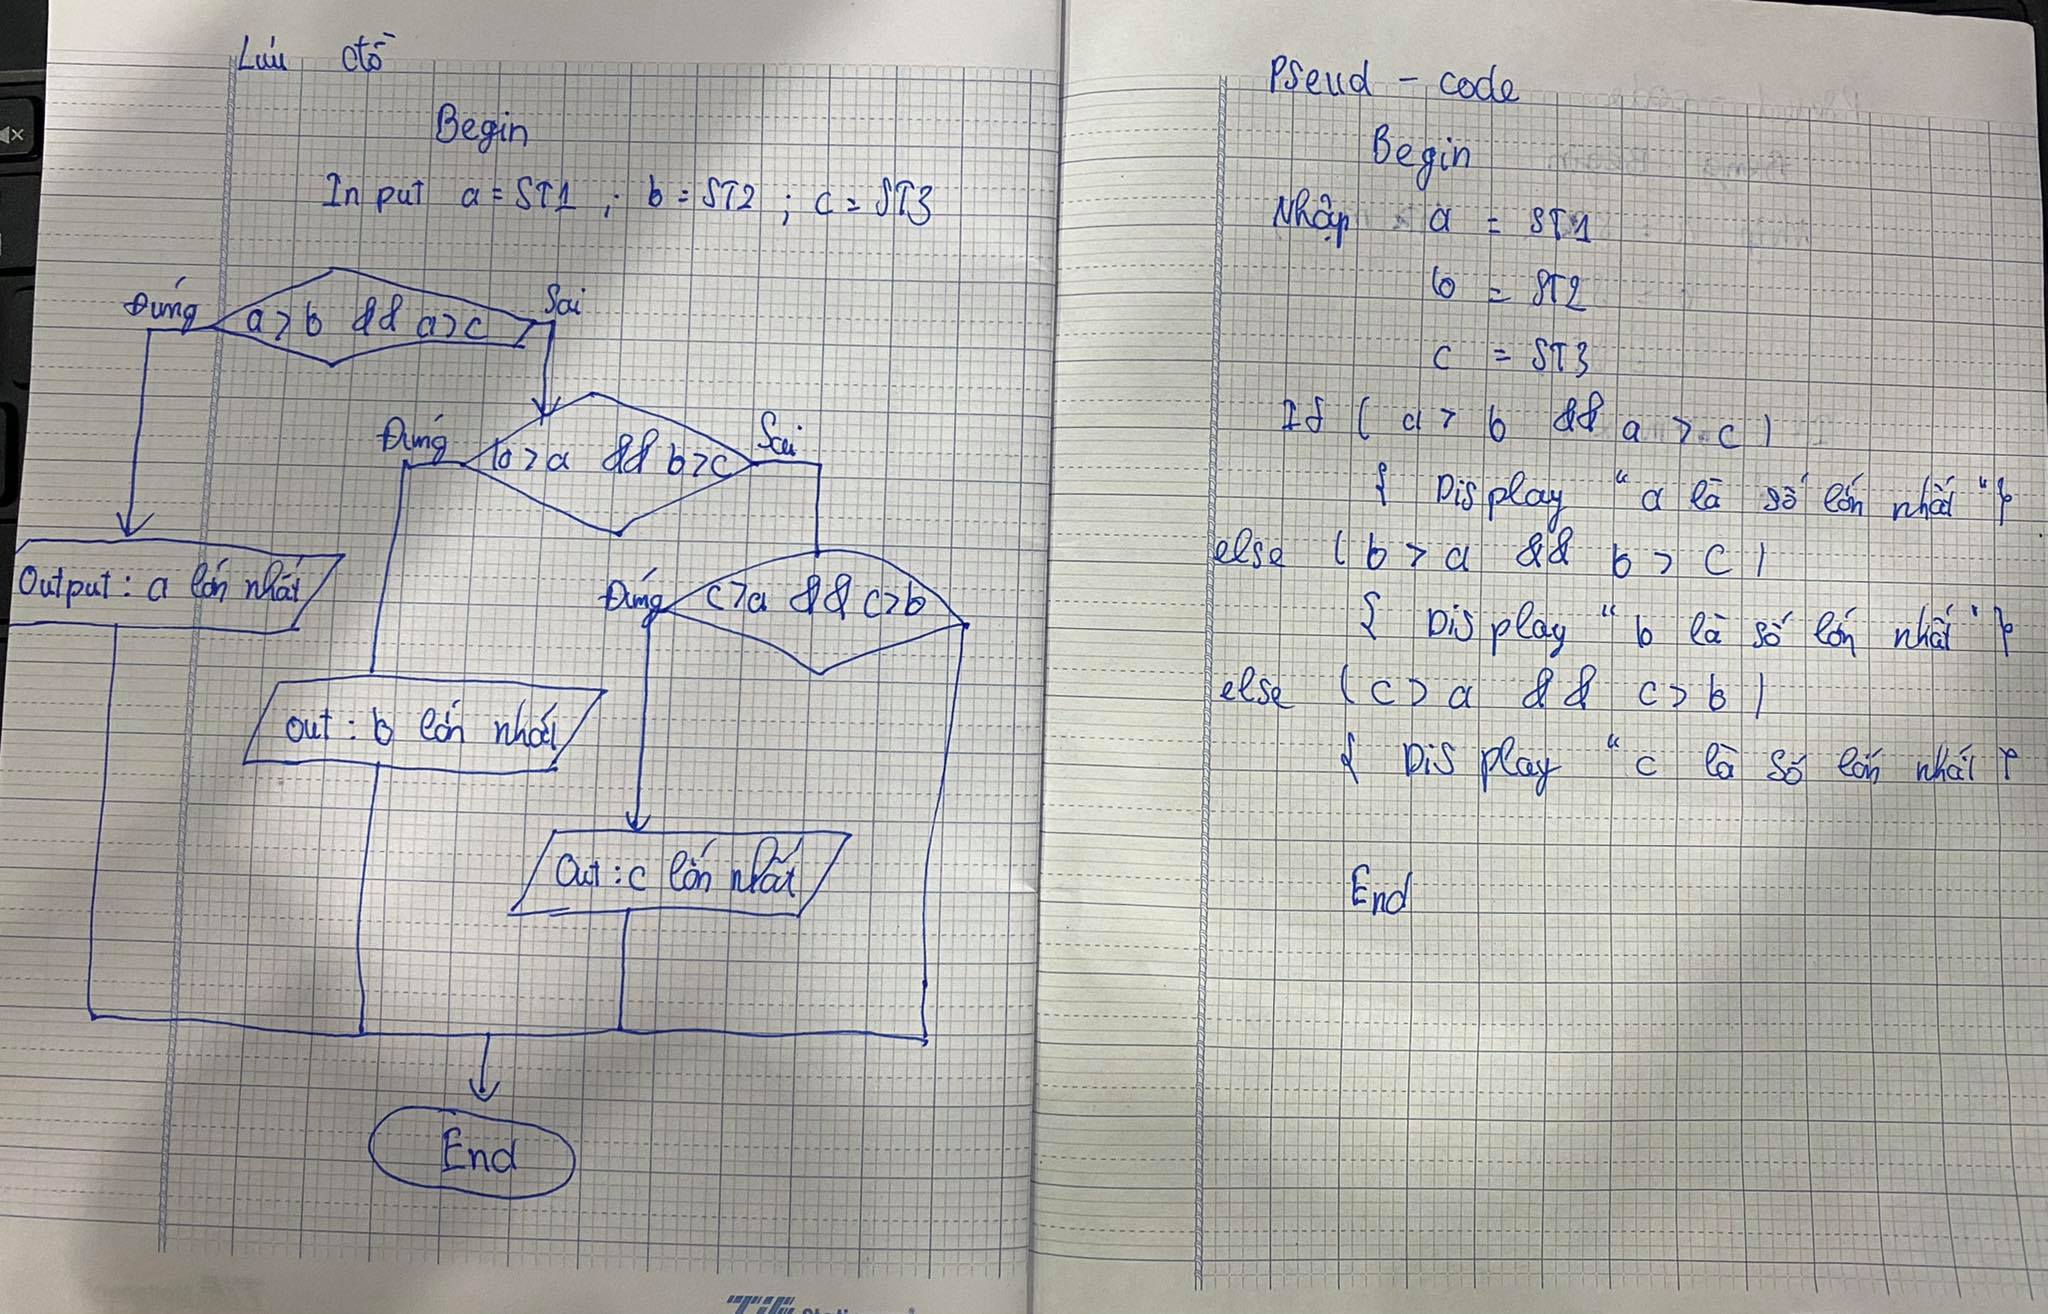 Lưu đồ
Begin
Input a = ST1 ; b = ST2 ; c = ST3
Đúng
a > b && a > c
Sai
Đúng
b > a && b > c
Sai
Output : a lớn nhất
Đúng
c > a && c > b
out : b lớn nhất
Out : c lớn nhất
End
Pseud - code
Begin
Nhập a = ST1
b = ST2
c = ST3
If ( a > b && a > c )
{ Display “ a là số lớn nhất " }
else ( b > a && b > c )
{ Display “ b là số lớn nhất " }
else ( c > a && c > b )
{ Display “ c là số lớn nhất }
End